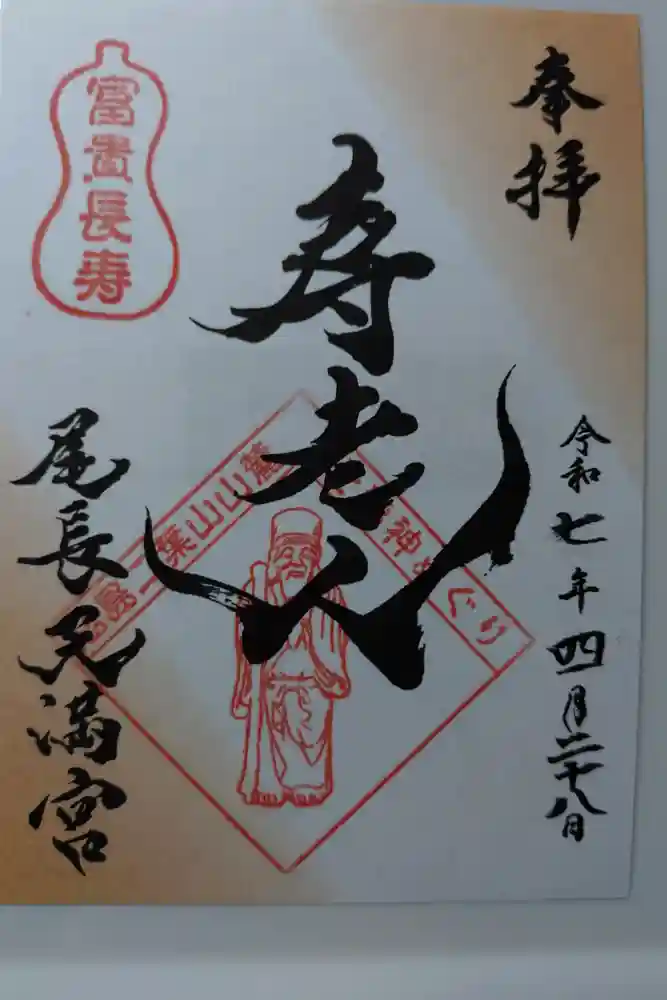 奉拝
令和七年四月二十八日
寿老人
富貴長寿
二葉山山麓
神めぐり
尾長天満宮